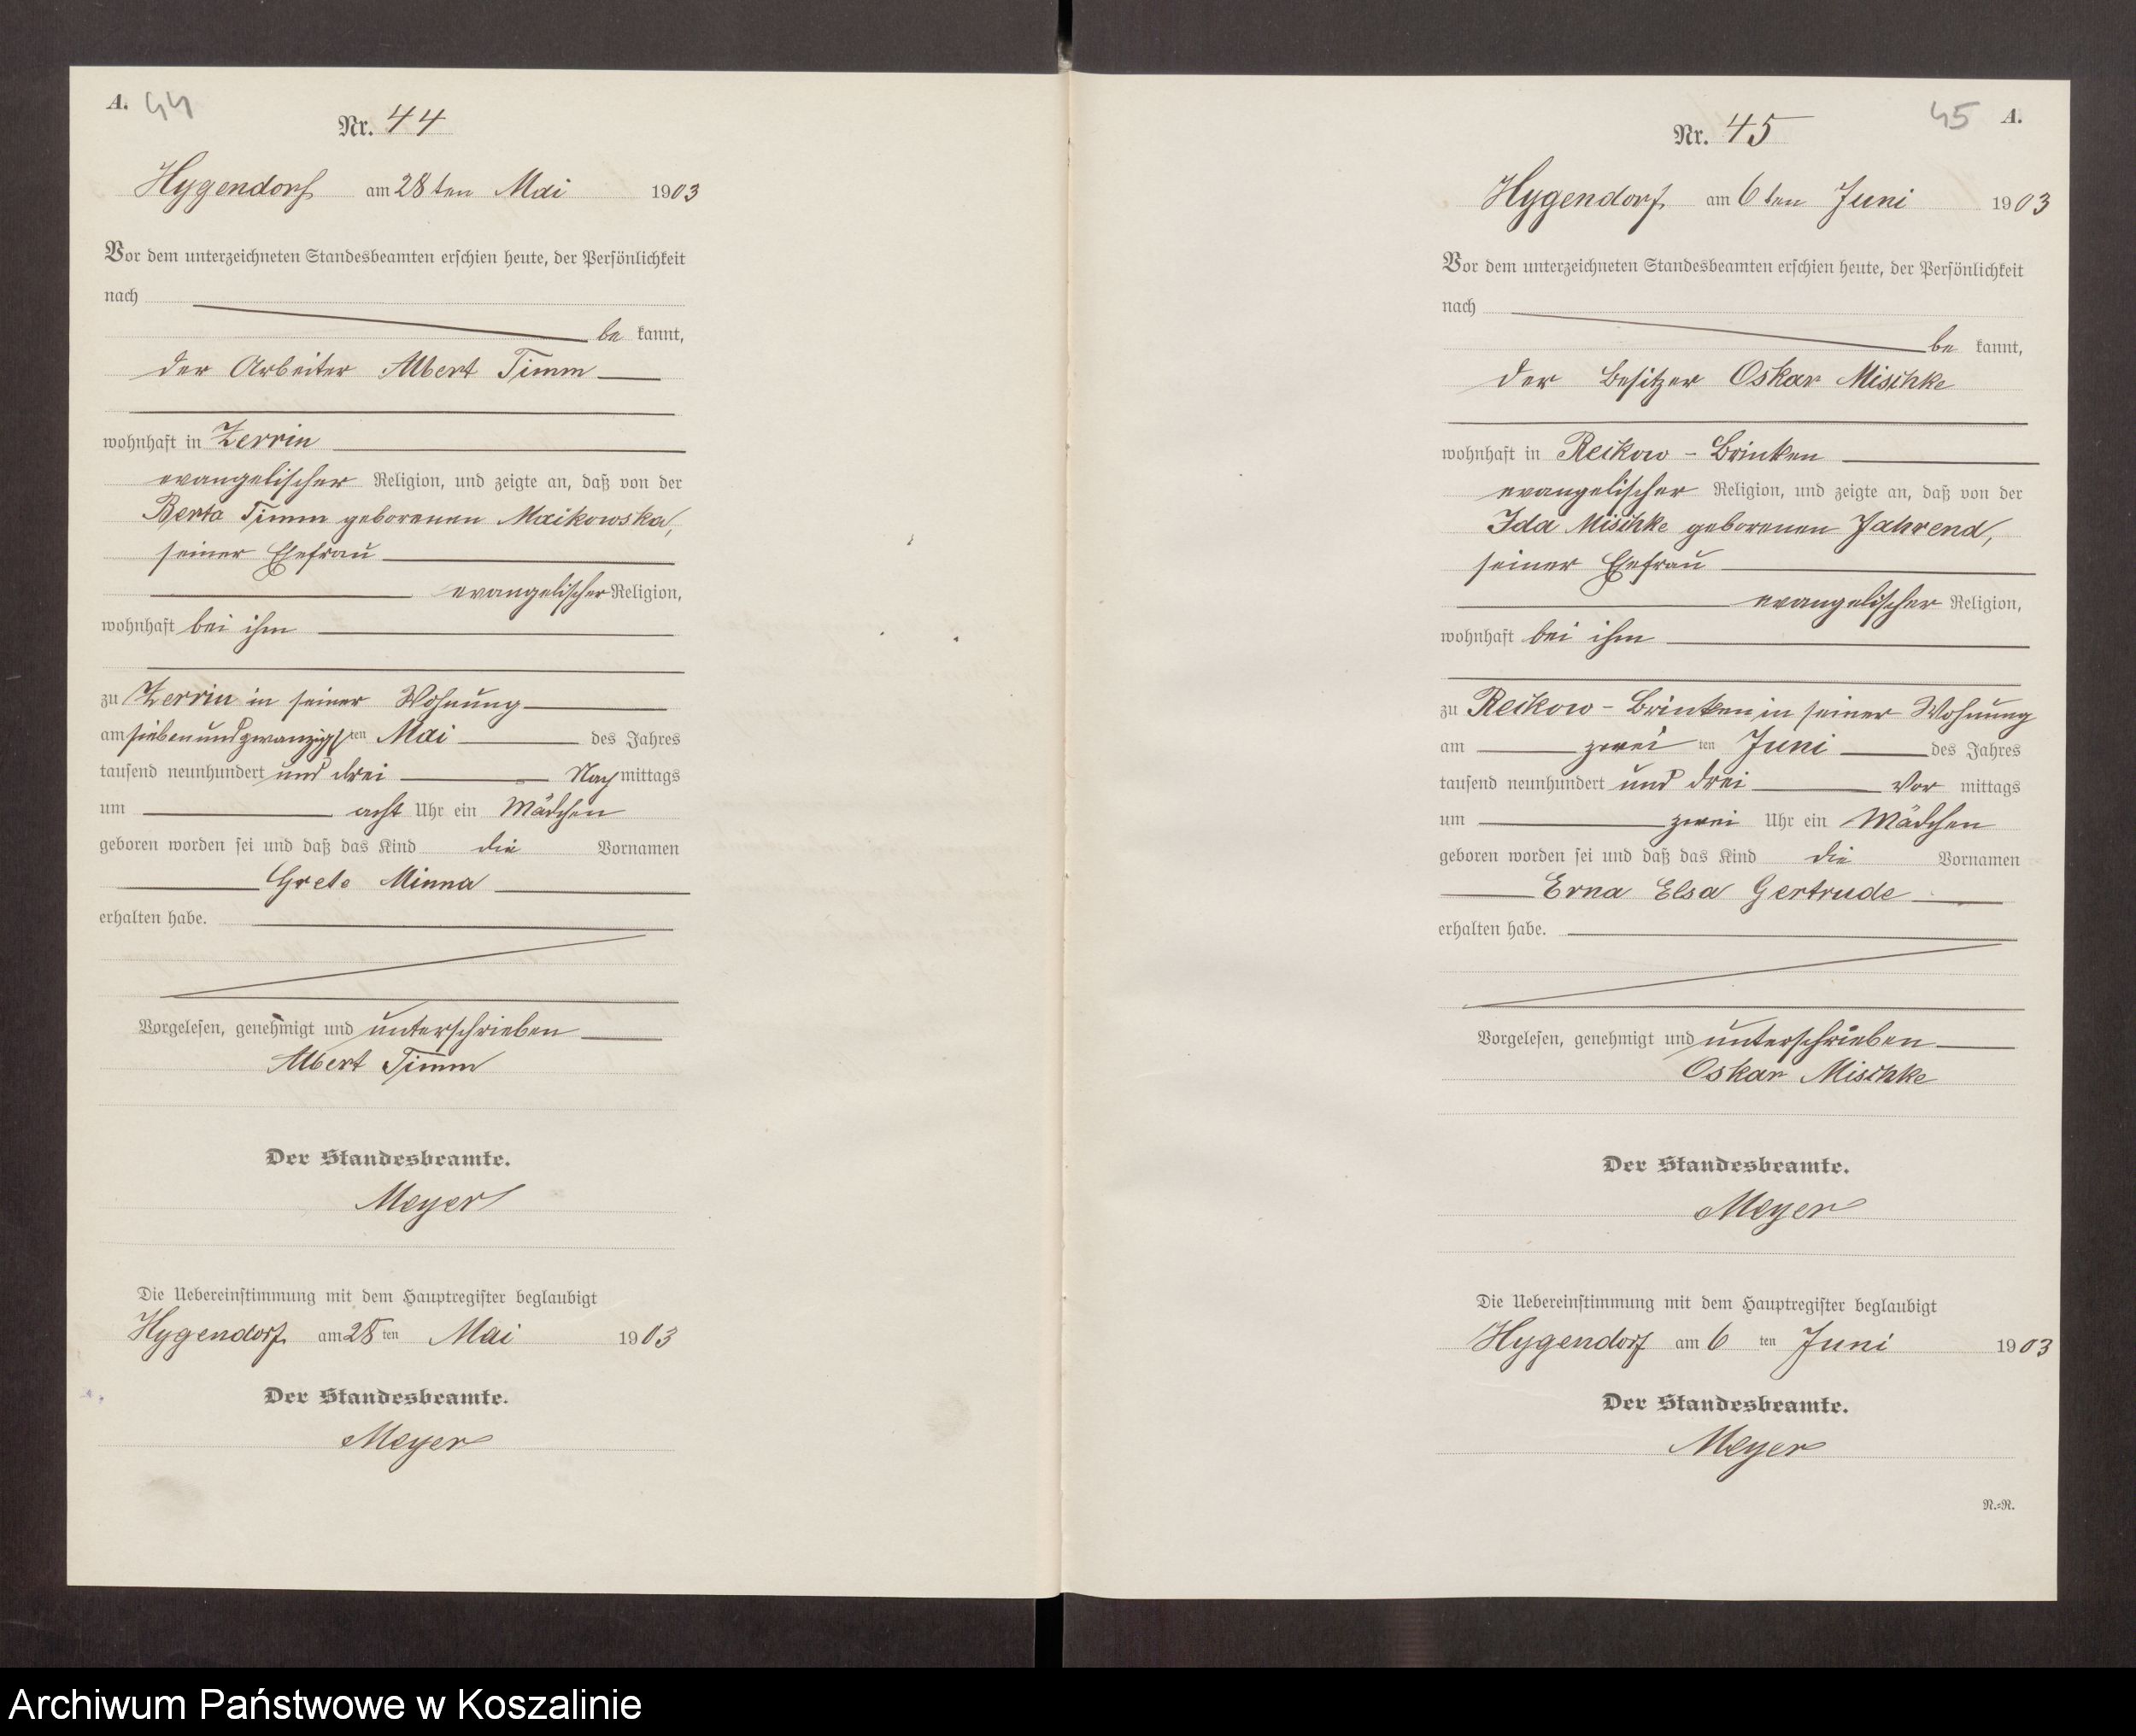 A. 44
Nr. 44
Hygendorf am 28ten Mai 1903
Vor dem unterzeichneten Standesbeamten erschien heute, der Persönlichkeit
nach
be kannt,
der Arbeiter Albert Timm
wohnhaft in Zerrin
evangelischer Religion, und zeigte an, daß von der
Berta Timm geborenen Maikowska,
seiner Ehefrau
evangelischer Religion,
wohnhaft bei ihm
zu Zerrin in seiner Wohnung
am siebenundzwanzigsten Mai des Jahres
tausend neunhundert und drei Nachmittags
um acht Uhr ein Mädchen
geboren worden sei und daß das Kind die Vornamen
Grete Minna
erhalten habe.
Vorgelesen, genehmigt und unterschrieben
Albert Timm
Der Standesbeamte.
Meyer
Die Uebereinstimmung mit dem Hauptregister beglaubigt
Hygendorf am 28ten Mai 1903
Der Standesbeamte.
Meyer
45 A.
Nr. 45
Hygendorf am 6ten Juni 1903
Vor dem unterzeichneten Standesbeamten erschien heute, der Persönlichkeit
nach
be kannt,
der Besitzer Oskar Mischke
wohnhaft in Reikow-Brinken
evangelischer Religion, und zeigte an, daß von der
Ida Mischke geborenen Jahrend,
seiner Ehefrau
evangelischer Religion,
wohnhaft bei ihm
zu Reikow-Brinken in seiner Wohnung
am zwei ten Juni des Jahres
tausend neunhundert und drei Vor mittags
um zwei Uhr ein Mädchen
geboren worden sei und daß das Kind die Vornamen
Erna Elsa Gertrude
erhalten habe.
Vorgelesen, genehmigt und unterschrieben
Oskar Mischke
Der Standesbeamte.
Meyer
Die Uebereinstimmung mit dem Hauptregister beglaubigt
Hygendorf am 6 ten Juni 1903
Der Standesbeamte.
Meyer
N.=R.
Archiwum Państwowe w Koszalinie